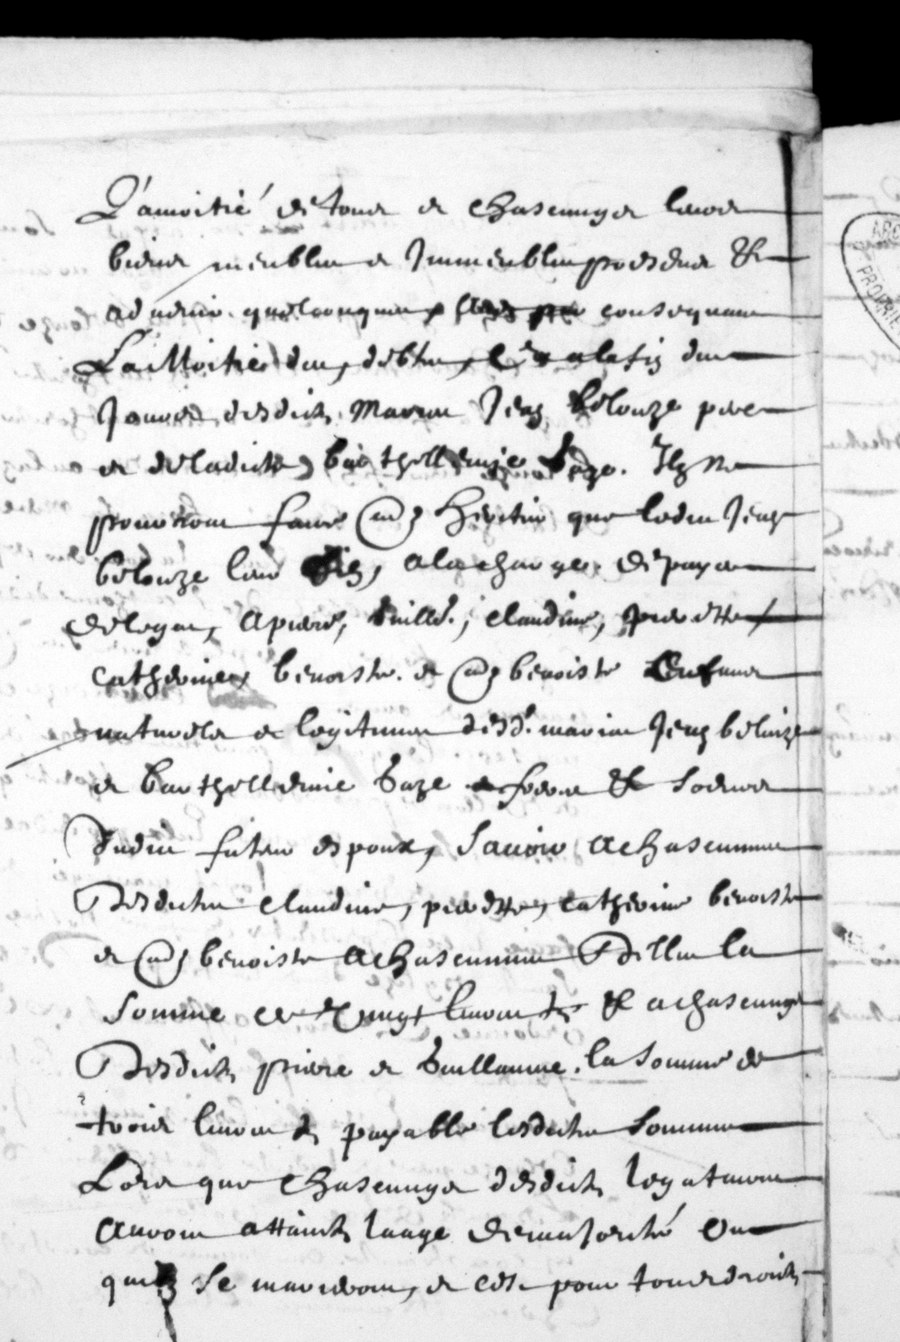 L'amoitié de tous et chascungs leurs
biens meubles et Immeubles presens &
advenir quelconques consequam
La Moitié des debtes,
Jouves desdicts Maries Jean belouze pere
et de ladicte barthellemie baze. Ilz ne
pourront faire aulz heritier que ledict Jean
belouze leur filz, ala charge de payer
deleguer, a pierre, Guille., claudine, pierrette
catherine, benoiste. et aultre benoiste Enfans
naturels et legitimes desd. maries Jean belouze
et barthellemie baze freres & soeurs
dudict futur espoux, Savoir a chascunne
Desdictes claudine, pierrette, catherine benoiste
et aultre benoiste a chascunne D'elles la
somme de vingt livres ts & a chascungs
Desdicts pierre et Guillaume. la somme de
trois livres ts payable lesdictes sommes
Lors que chascungs desdicts legataires
auront attaint laage de majorité Ou
quilz se marieront, et ce pour tous droicts